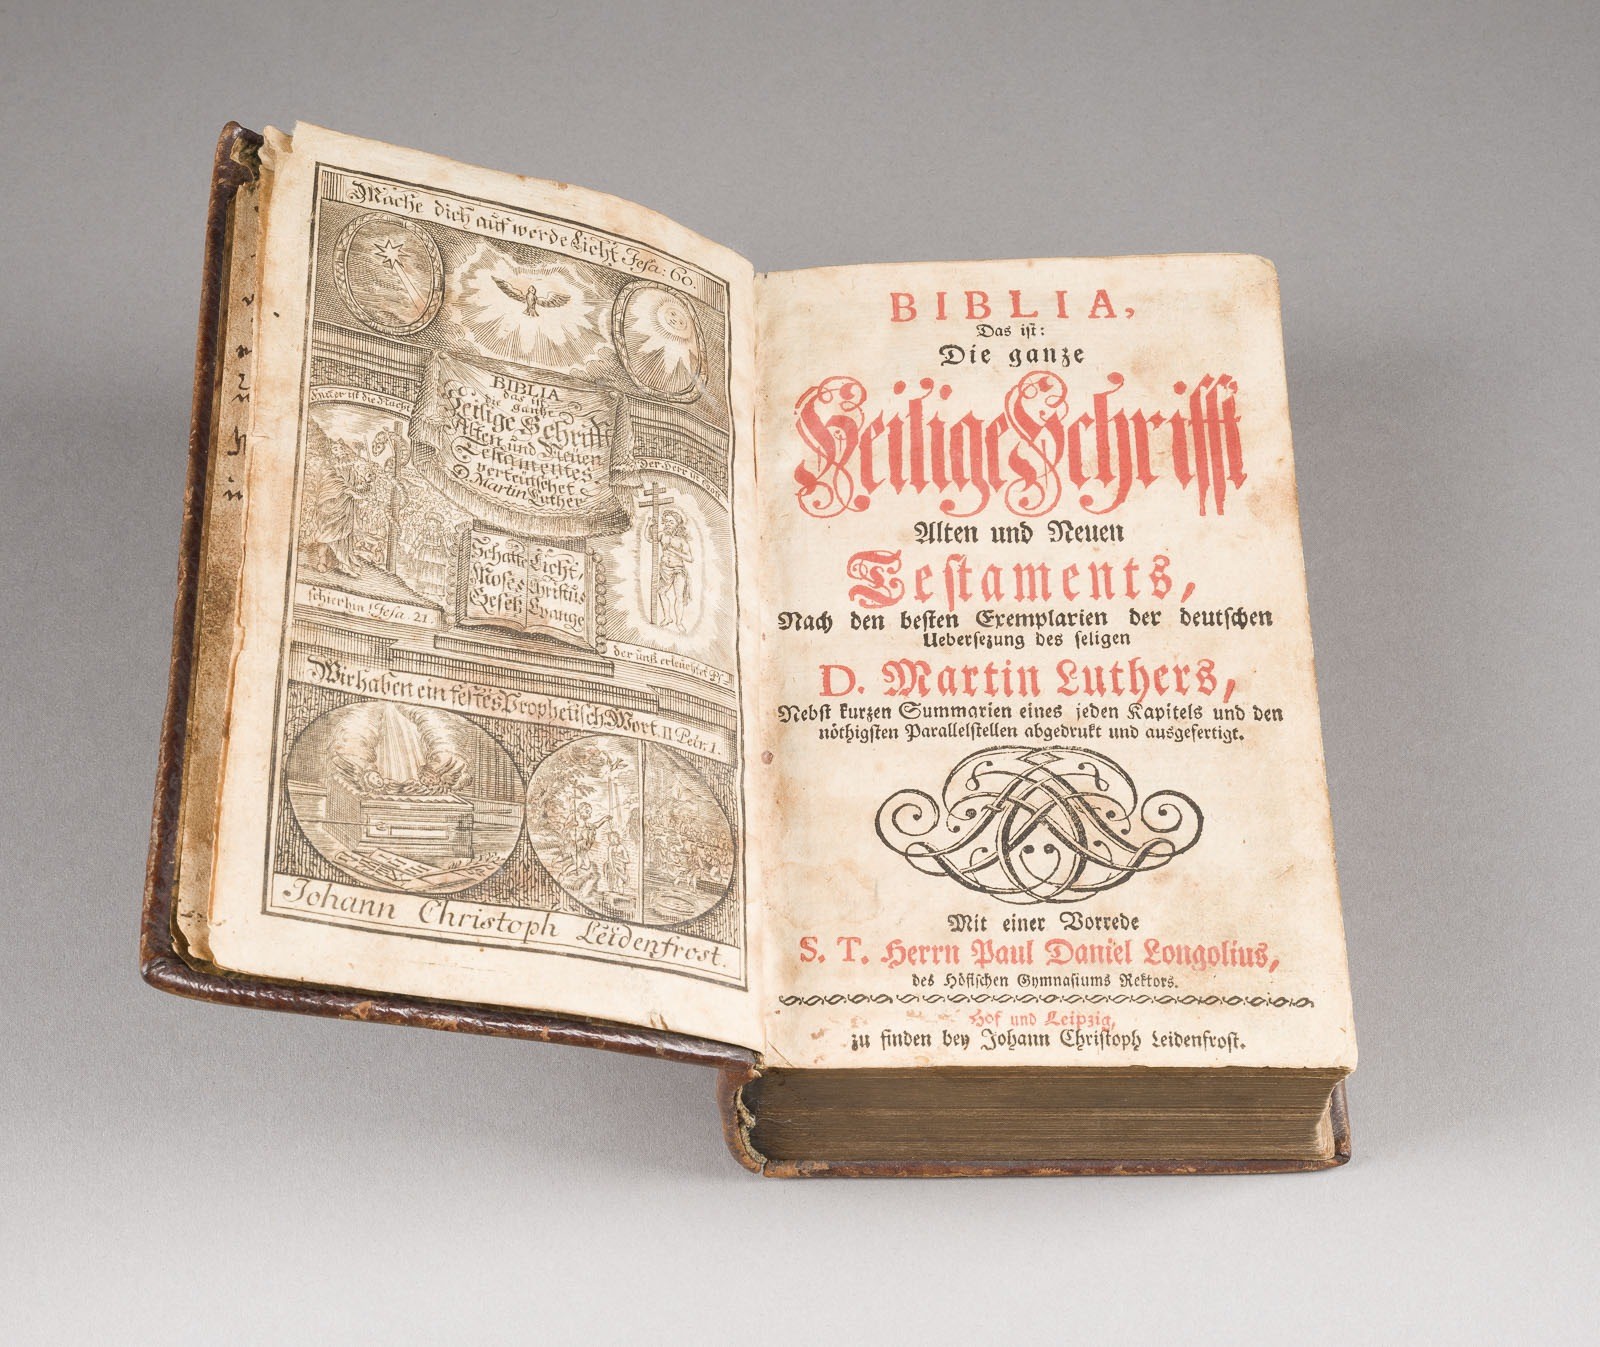 Mache dich auf werde Licht Jesa: 60.
Hüter ist die Nacht
BIBLIA
das ist
die gantze
Heilige Schrifft
Alten und Neuen
Testamentes
verteutschet
D. Martin Luther
der Herr ist Gott
Schatte Licht,
Moses Christus
Gesetz Evange
schier hin! Jesa. 21.
der uns erleuchtet Ps.
Wir haben ein festes Prophetisch Wort. II Petr. 1.
Johann Christoph Leidenfrost.
BIBLIA,
Das ist:
Die ganze
Heilige Schrifft
Alten und Neuen
Testaments,
Nach den besten Exemplarien der deutschen
Uebersezung des seligen
D. Martin Luthers,
Nebst kurzen Summarien eines jeden Kapitels und den
nöthigsten Parallelstellen abgedrukt und ausgefertigt.
Mit einer Vorrede
S. T. Herrn Paul Daniel Longolius,
des Höfischen Gymnasiums Rektors.
Hof und Leipzig,
zu finden bey Johann Christoph Leidenfrost.